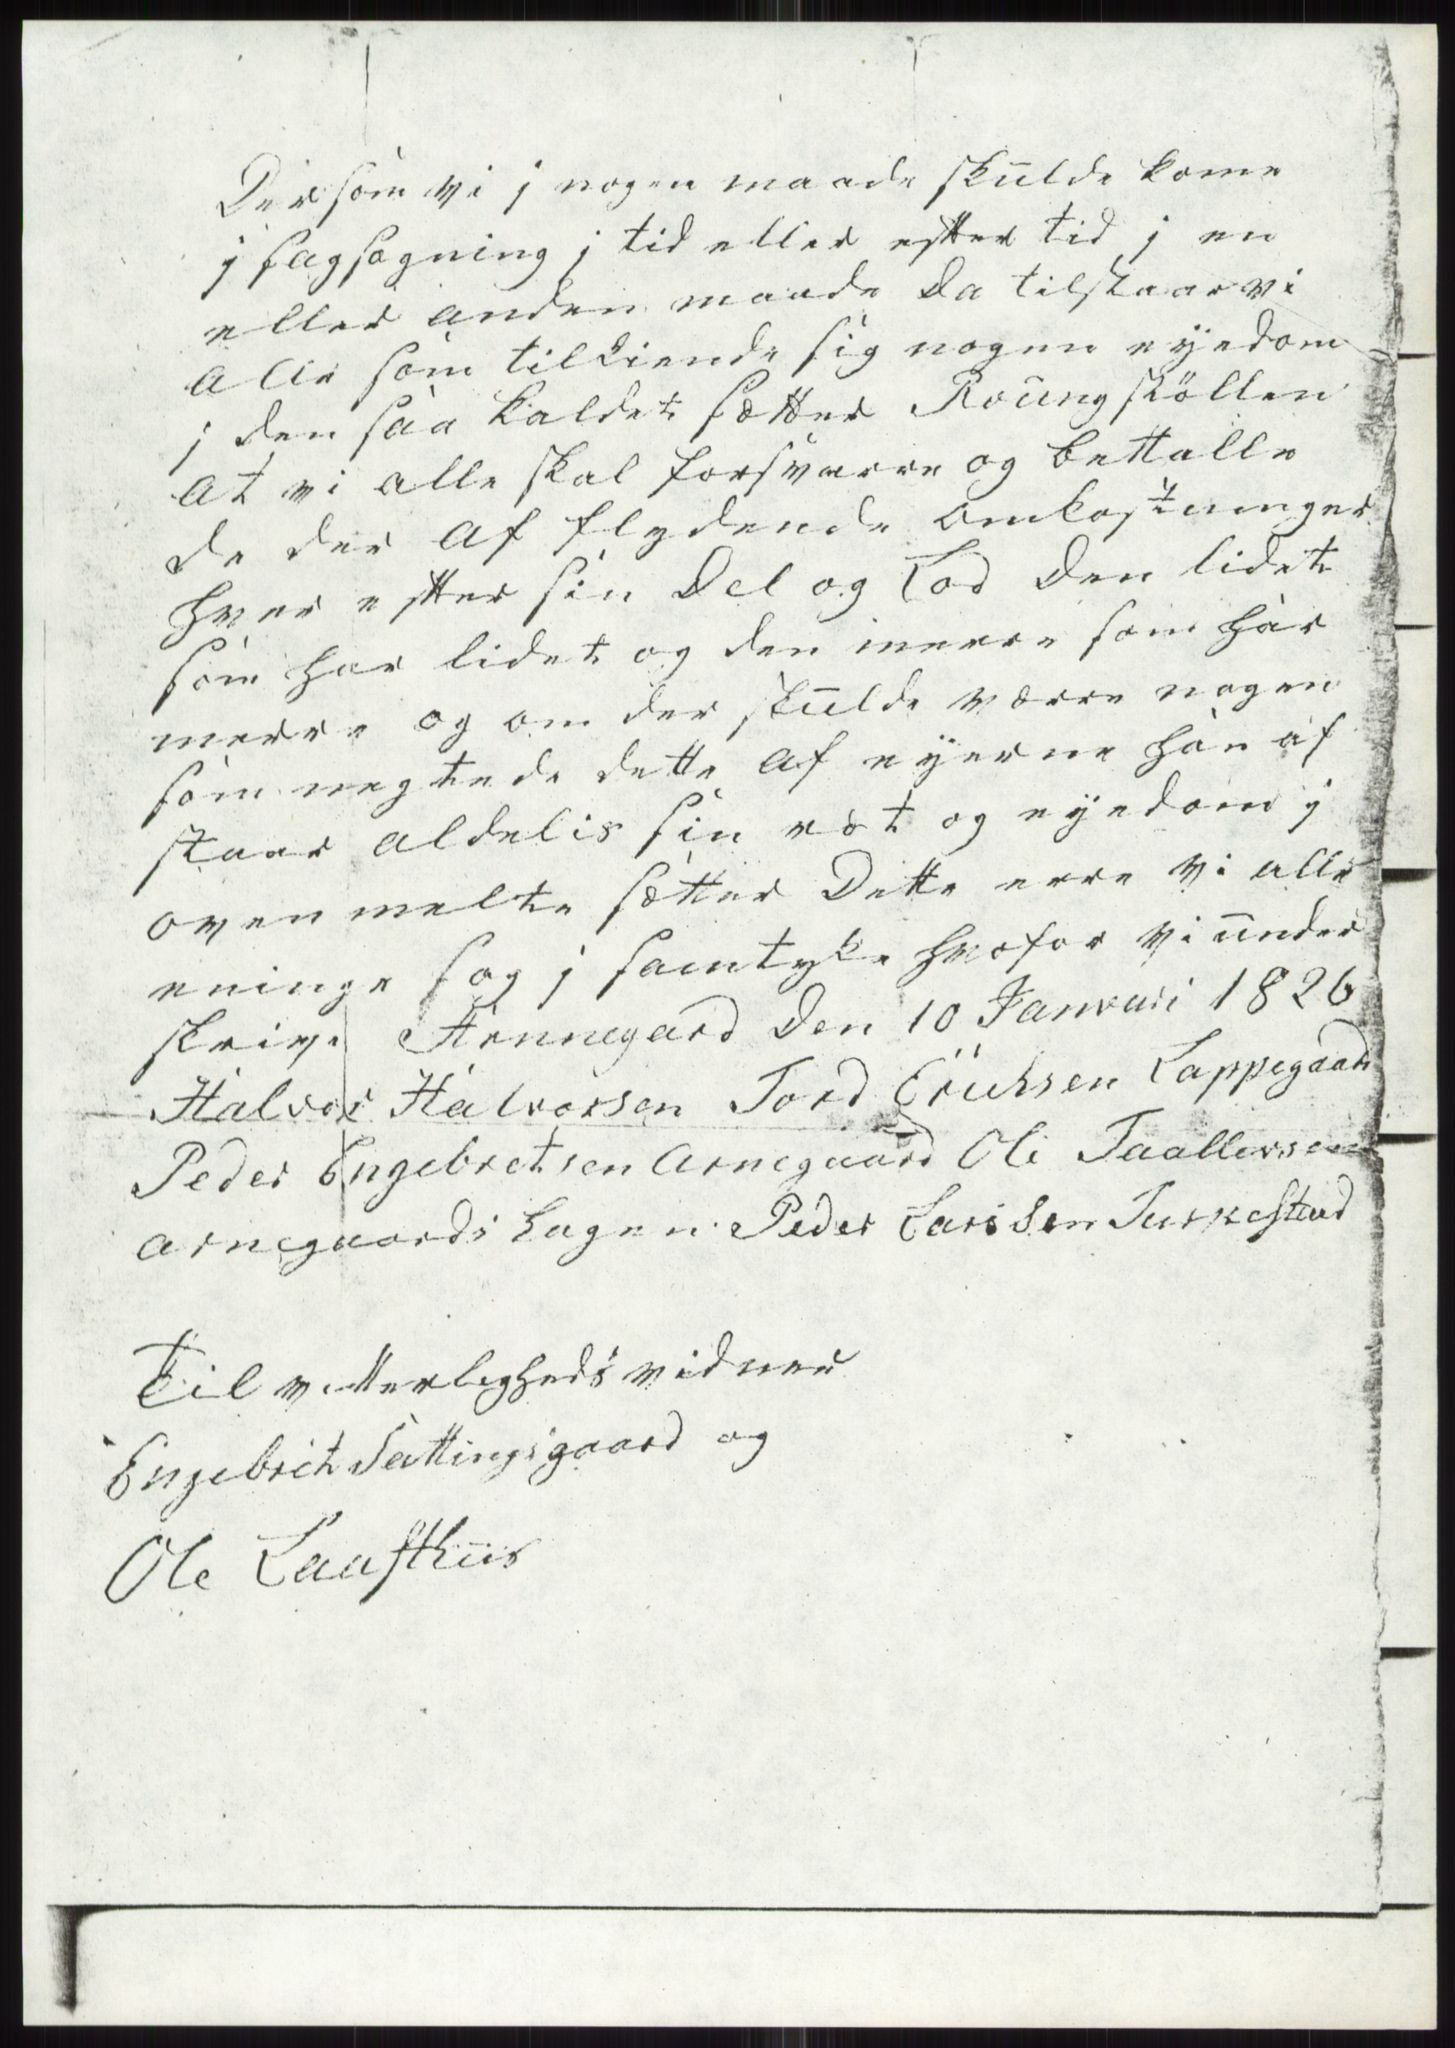 Dersom vi j nogen maade skulde kome
j sagsøgning j tid eller efter tid j en
eller anden maade Da tilstaar vi
alle som tilkiende sig nogen eyedom
j den saa kaldet sætter Roungstöllen
at vi alle skal forsvarre og bettalle
de der af flydende omkostninger
hver efter sin Del og Lod Den lidet
som har lidet og den merre som har
merre og om der skulde værre nogen
som negtede dette af eyerne han af
staar aldelis sin ræt og eyedom j
oven melte sætter Dette erre vi alle
eninge sog j samtyke hvofor vi under
skrive Arnnegard Den 10 Januari 1826
Halvor Halvorsen Tord Erichsen Lappegaard
Peder Engebretsen Arnegaard Ole Taallevsen
arnegaards hagen Peder Larssen Turkestad
Til vitterligheds vidner
Engebret Sattingsgaard og
Ole Laafthuus